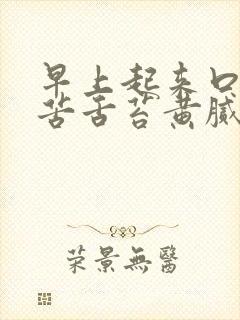 早上起来口
苦舌苔黄腻
荣景無醫